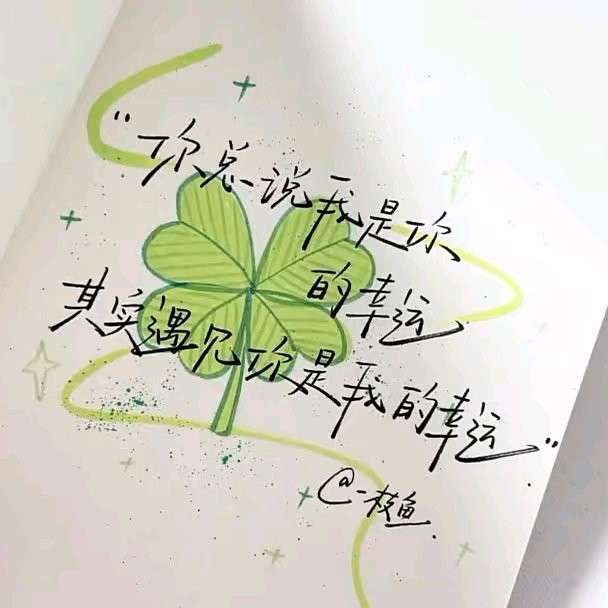 “你总说我是你
的幸运
其实遇见你是我的幸运”
@一枝鱼